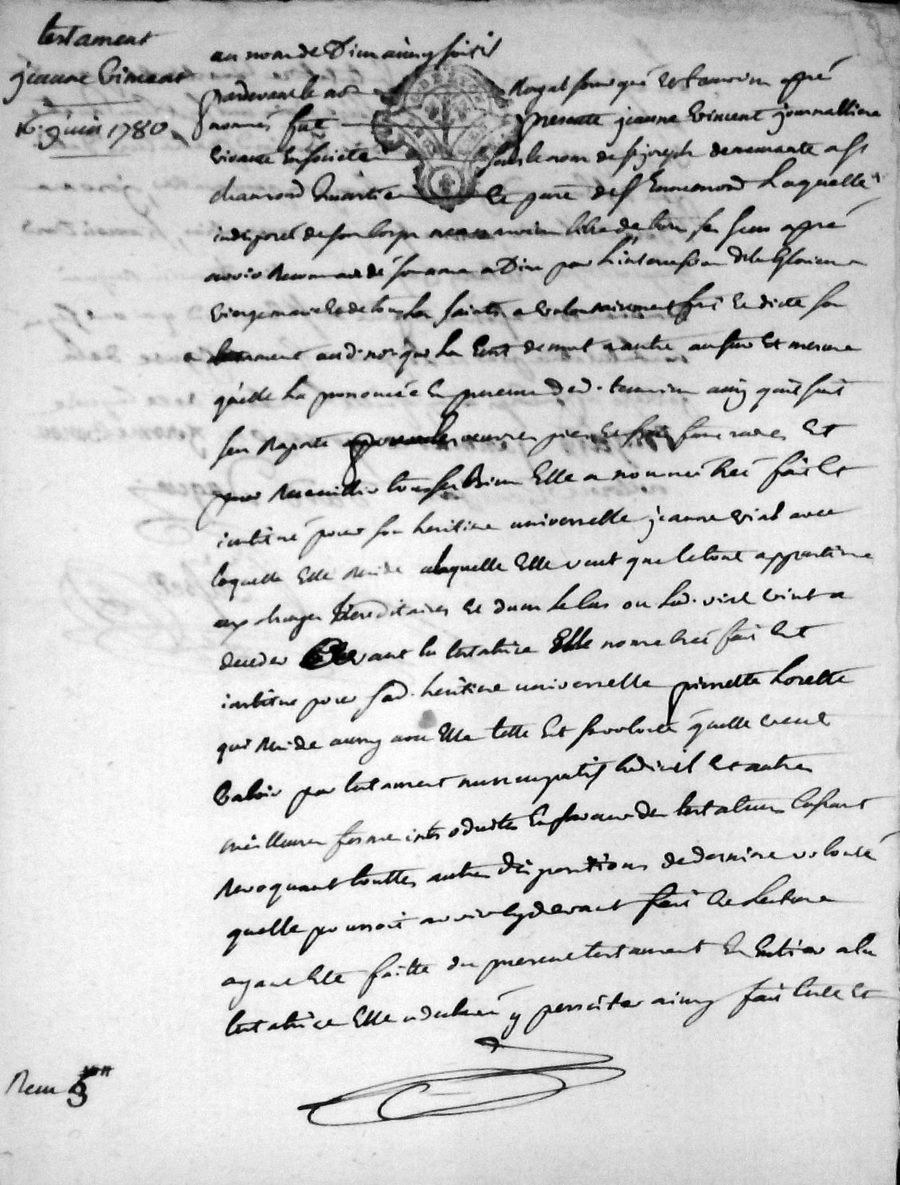 testament
jeanne Vincent
16. juin 1780
au nom de Dieu ainsy soit il
pardevant le no Royal soussigné et temoins apré
nommés fut presente jeanne Vincent journalliere
vivante en societé sous le nom de st joseph demeurante a st
chamond quartie de st Ennemond Laquelle
indisposée de son corps neanmoins libre de tous ses sens apré
avoir recommandé son ame a Dieu par l'intercession de la glorieuse
vierge marie et de tous les saints a volontairement fait et dicté son
testament aud. no: qui la Ecrit de mot a autre au fur et mesure
qu'elle la prononcé en presence desd. temoins ainsy quil suit
sen raporte pour les oeuvres pies et frais funeraires Et
pour recueillir tous ses Biens Elle a nommé créé fait Et
institué pour son heritiere universelle jeanne vial avec
laquelle Elle reside a laquelle Elle veut que le tout appartienne
aux charges hereditaires Et dans le cas ou lad. vial vint a
deceder avant la testatrice Elle nomme créé fait Et
institue pour sad. heritiere universelle pierrette Lorette
qui reside aussy avec Elle telle Est sa volonté qu'elle veut
valoir par testament nuncupatif codicil et autres
meilleures formes introduites en faveur des testateurs
revoquant touttes autres dispositions de derniere volonté
quelle pourroit avoir cy devant fait lecture
ayant Eté faitte du present testament En Entier a la
testatrice Elle a declaré y persister ainsy fait lu Et